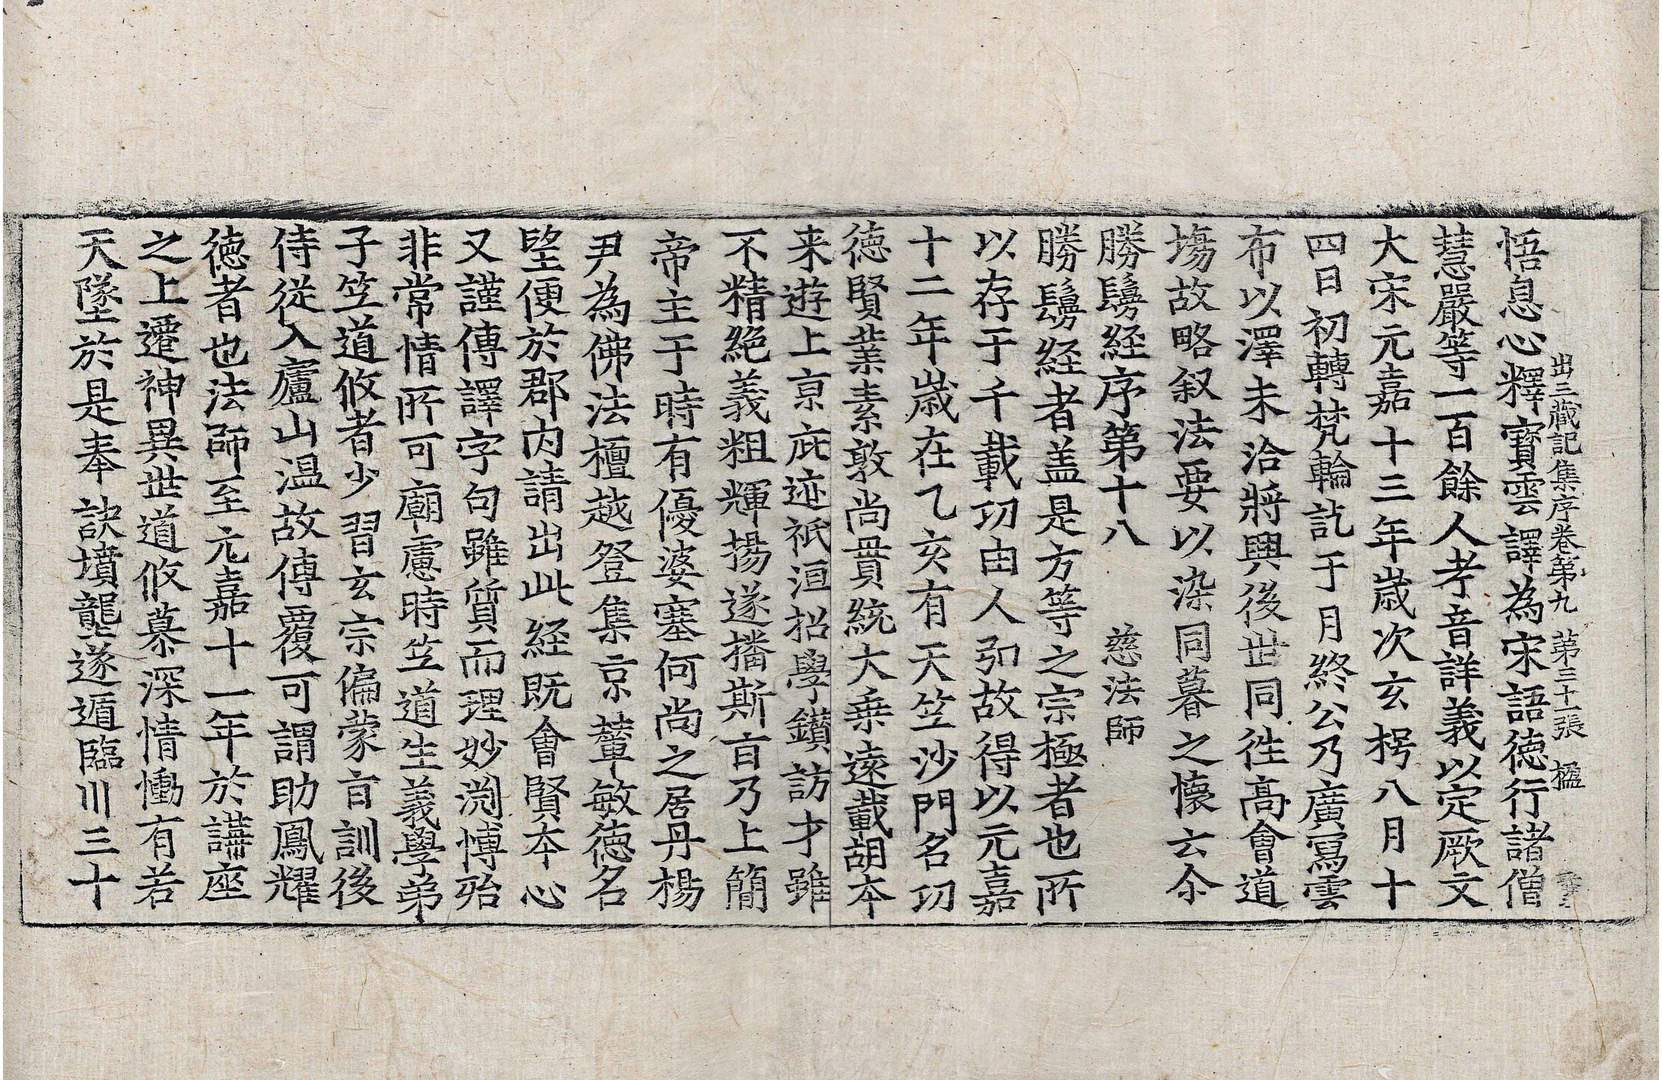 出三藏記集序卷第九 第三十張 楹
悟息心釋寶雲譯為宋語德行諸僧
慧嚴等一百餘人考音詳義以定厥文
大宋元嘉十三年歲次玄枵八月十
四日初轉梵輪訖于月終公乃廣寫雲
布以澤未洽將興後世同往高會道
塲故略叙法要以染同暮之懷云尒
勝鬘経序第十八 慈法師
勝鬘経者盖是方等之宗極者也所
以存于千載功由人弘故得以元嘉
十二年歲在乙亥有天竺沙門名功
德賢業素敦尚貫統大乗遠載胡本
来遊上京庇迹祇洹招學鑚訪才雖
不精絶義粗輝揚遂播斯盲乃上簡
帝主于時有優婆塞何尚之居丹楊
尹為佛法檀越登集京輦敏德名
望便於郡内請出此経既會賢本心
又謹傳譯字句雖質而理妙渊愽殆
非常情所可廟慮時竺道生義學弟
子竺道攸者少習玄宗偏蒙盲訓後
侍從入廬山温故傳覆可謂助鳳耀
德者也法師至元嘉十一年於講座
之上遷神異世道攸慕深情慟有若
天墜於是奉訣墳壟遂遁臨川三十